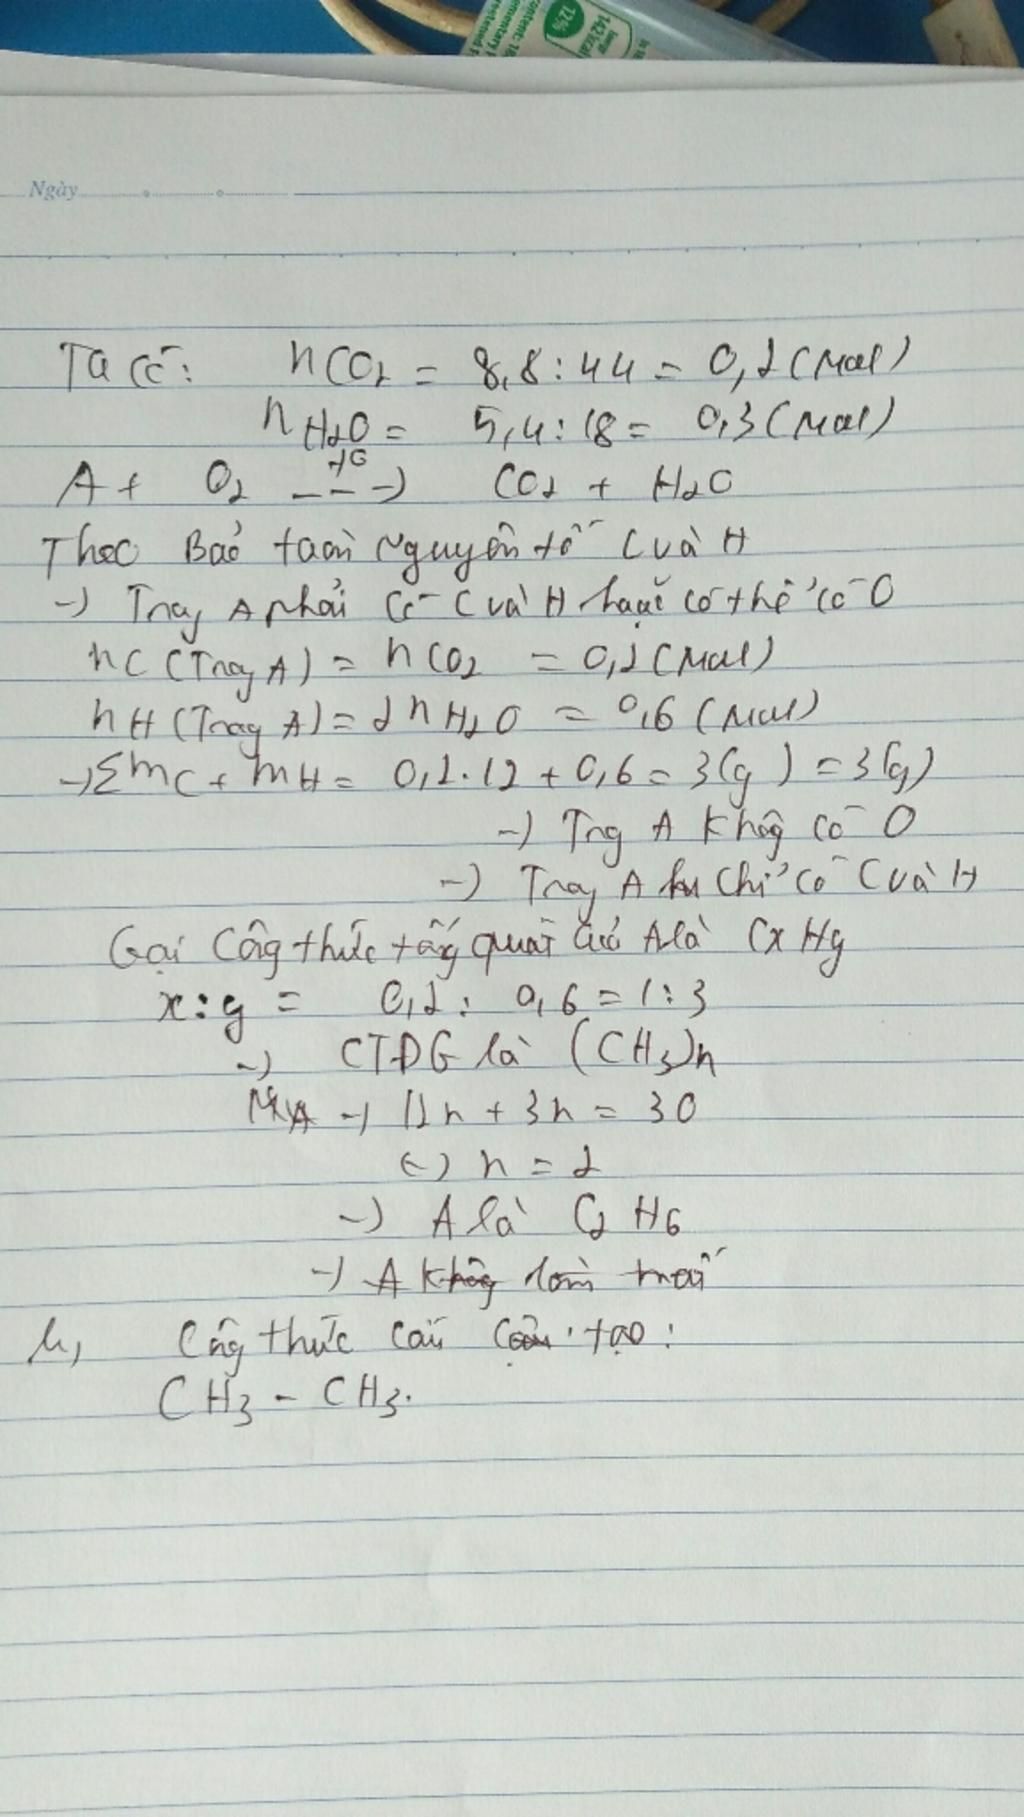 12%
Ngày
Ta có: nCO2 = 8,8 : 44 = 0,2 (mol)
nH2O = 5,4 : 18 = 0,3 (mol)
A + O2 ---> CO2 + H2O
Theo Bảo toàn Nguyên tố C và H
-> Trong A phải có C và H hoặc có thể có O
nC (Trong A) = nCO2 = 0,2 (mol)
nH (Trong A) = 2nH2O = 0,6 (mol)
-> ΣmC + mH = 0,2.12 + 0,6 = 3(g) = 3(g)
-> Trg A không có O
-> Trong A chỉ có C và H
Gọi Công thức tổng quát của A là CxHy
x : y = 0,2 : 0,6 = 1 : 3
-> CTĐG là (CH3)n
-> 12n + 3n = 30
<-> n = 2
-> A là C2H6
-> A không làm mất
Công thức cấu tạo :
CH3 - CH3.